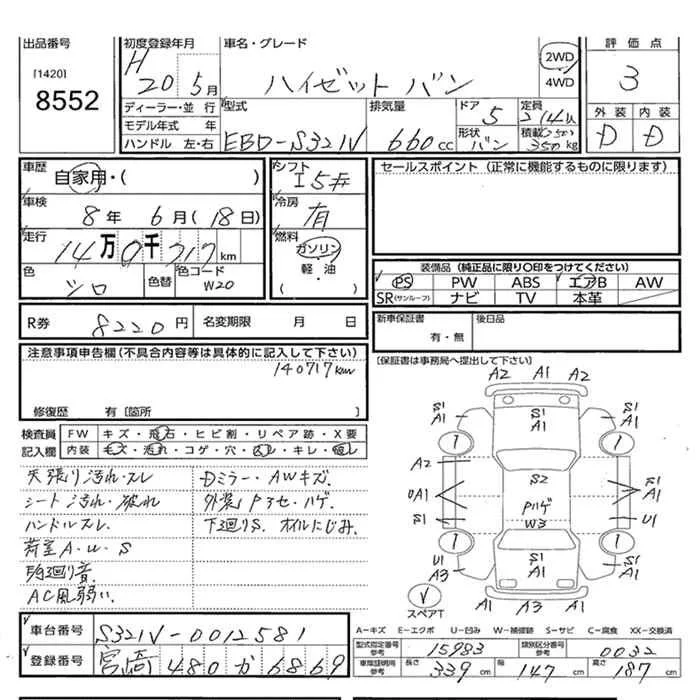 出品番号
[1420]
8552
初度登録年月
H
20 5月
車名・グレード
ハイゼット バン
2WD
4WD
評価点
3
外装 内装
D D
ディーラー・並行
モデル年式 年
ハンドル 左・右
型式
EBD-S321V
排気量
660cc
ドア 5
形状 バン
定員
積載 350kg
車歴
自家用・( )
車検
8年 6月(18日)
走行
14万0千717km
色
シロ
色替
色コード
W20
シフト
I5#
冷房
有
燃料
ガソリン
軽・油
( )
セールスポイント (正常に機能するものに限ります)
装備品 (純正品に限り○印をつけてください)
PS PW ABS エアB AW
SR(サンルーフ) ナビ TV 本革
R券 8220円 名変期限 月 日
新車保証書
有・無
後日品
[保証書は事務局へ提出して下さい]
注意事項申告欄 (不具合内容等は具体的に記入して下さい)
140717km
修復歴 有[箇所 ]
検査員 FW キズ・飛石・ヒビ割・リペア跡・X要
記入欄 内装 キズ・汚れ・コゲ・穴・・キレ・
天張り汚れ・スレ
シート汚れ・破れ
ハンドルスレ
荷室A・U・S
駒廻り音
AC風弱い.
Dミラー・AWキズ.
外装Pヌケ・ハゲ
下廻りS. オイルにじみ.
A2 A1 A2
S1 A1
S1 A1
S1 A1
A2
S2
S1 A1
UA1
Pハゲ
W3
S1
U1
U1 A3
S1 A1
S1 A1
A1 A1 A1
スペアT
A=キズ E=エクボ U=凹み W=補修跡 S=サビ C=腐食 XX=交換済
車台番号 S321V-0012581
登録番号 宮崎 480 か 6869
型式指定番号 参考 15983
類別区分番号 参考 0032
車庫証明用 参考
長さ 339cm
幅 147cm
高さ 187cm